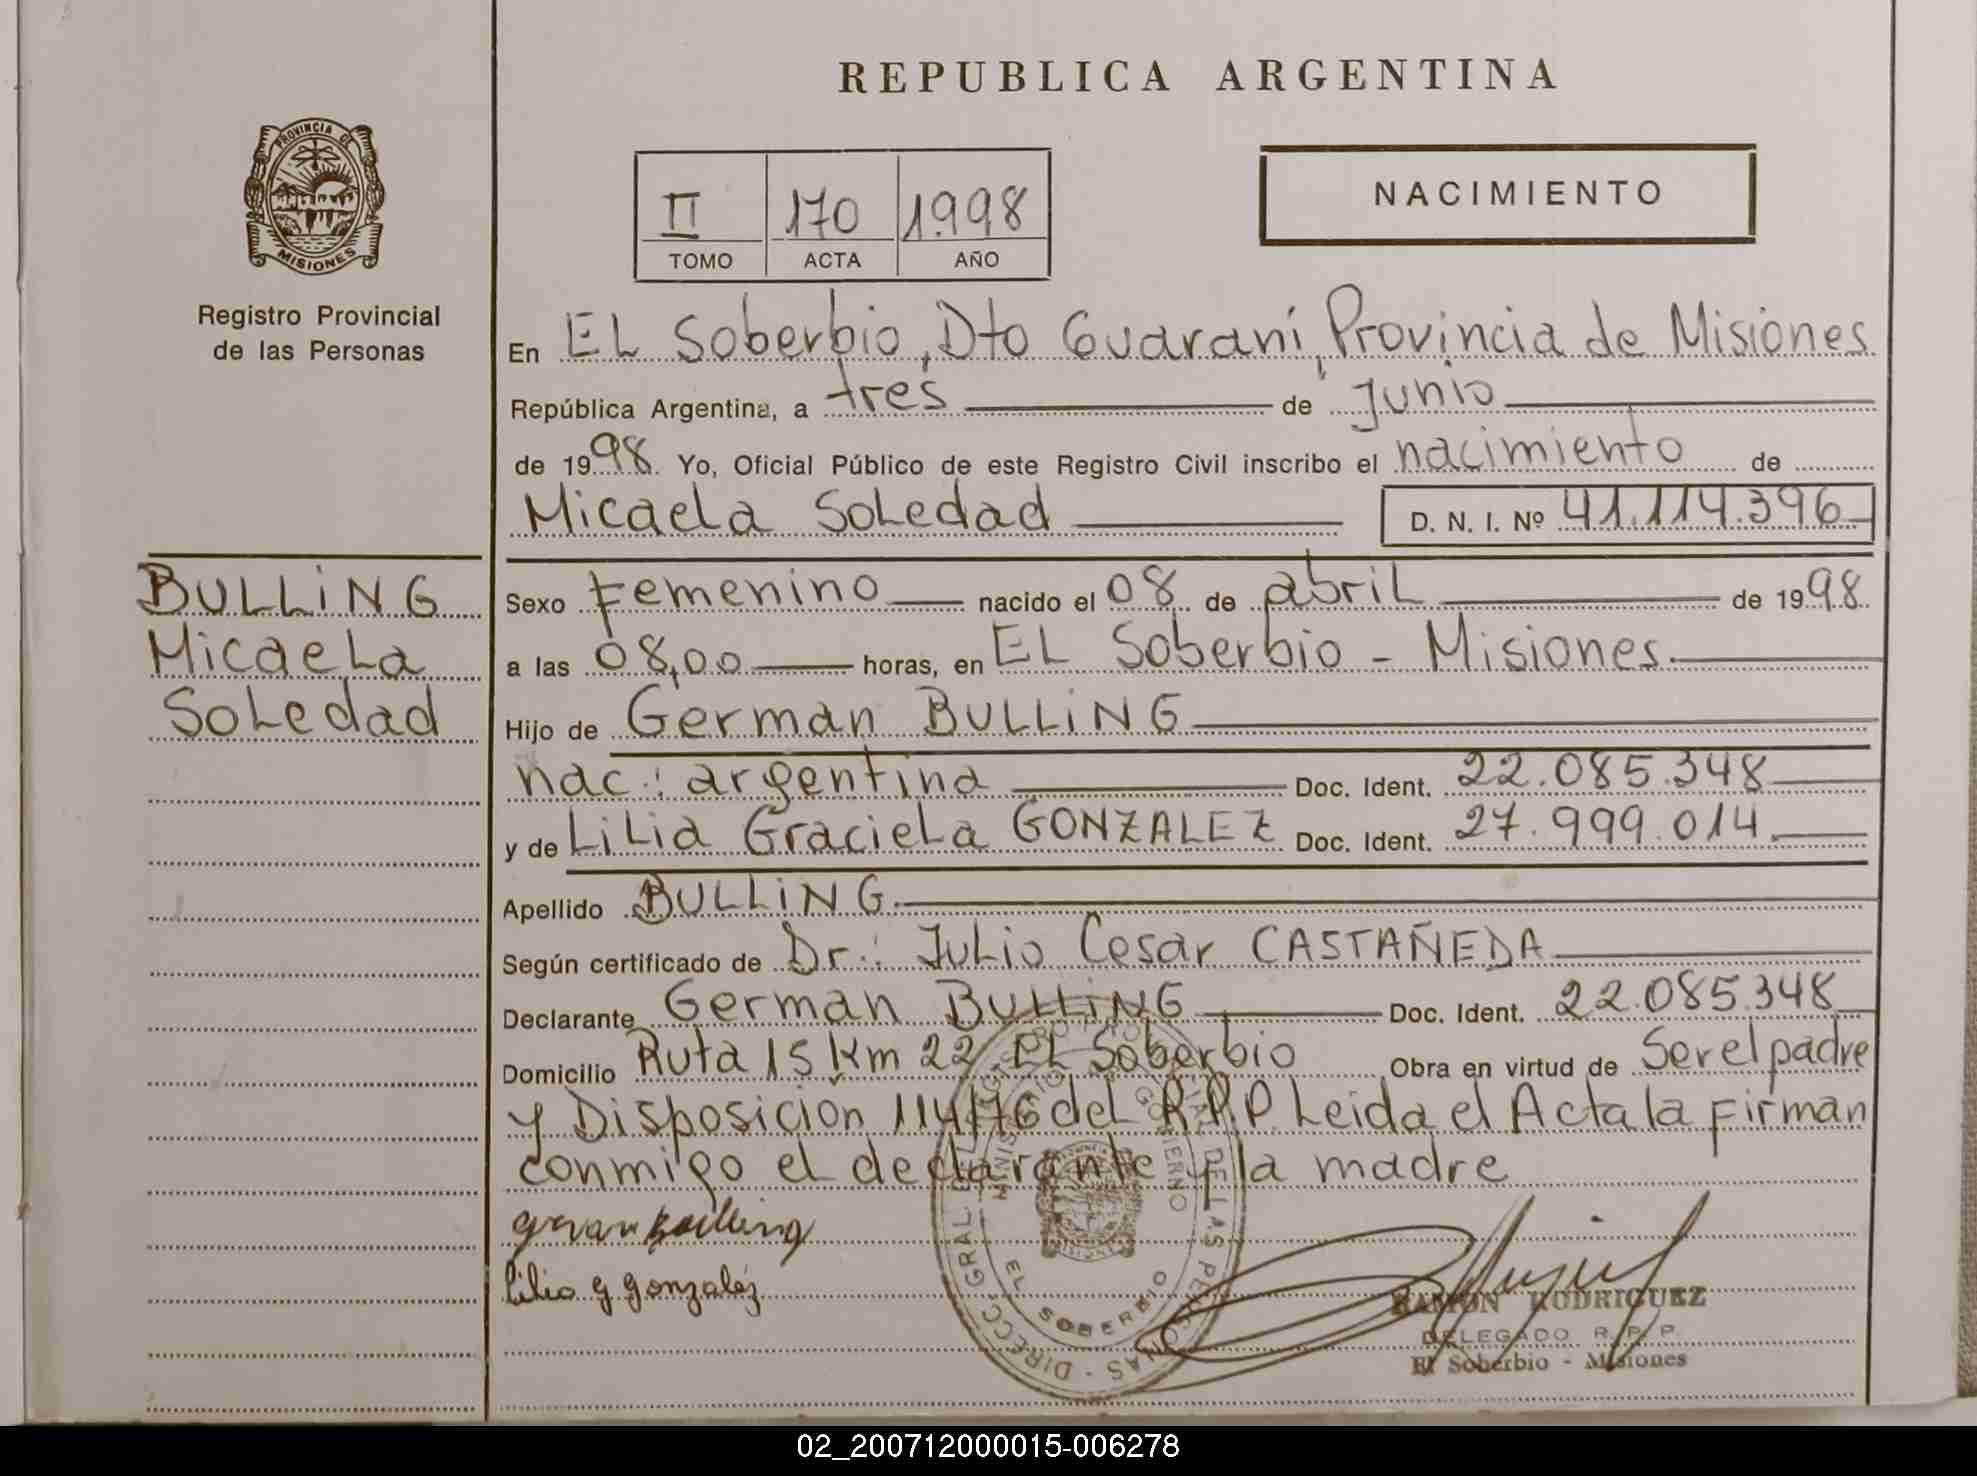 REPUBLICA ARGENTINA
PROVINCIA DE
MISIONES
Registro Provincial
de las Personas
II 170 1998
TOMO ACTA AÑO
NACIMIENTO
En EL Soberbio, Dto Guaraní, Provincia de Misiones
República Argentina, a tres de junio
de 1998. Yo, Oficial Público de este Registro Civil inscribo el nacimiento de
Micaela Soledad D. N. I. Nº 41.114.396
BULLING
Micaela
Soledad
Sexo Femenino nacido el 08 de abril de 1998
a las 08,00 horas, en EL Soberbio - Misiones
Hijo de German BULLING
nac: argentina Doc. Ident. 22.085.348
y de Lilia Graciela GONZALEZ Doc. Ident. 27.999.014
Apellido BULLING
Según certificado de Dr.: Julio Cesar CASTAÑEDA
Declarante German BULLING Doc. Ident. 22.085.348
Domicilio Ruta 15 Km 22 EL Soberbio Obra en virtud de Ser el padre
y Disposicion 114/76 del R.P.P. Leida el Acta la firman
conmigo el declarante y la madre
german bulling
lilia g gonzaléz
EL SOBERBIO
RAMON RODRIGUEZ
DELEGADO R. P. P.
El Soberbio - Misiones
02_200712000015-006278